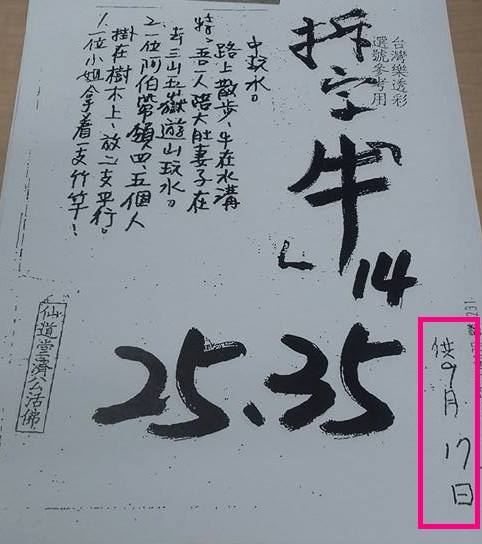 台灣樂透彩
選號參考用
拆字「牛」
14
25、35
1.一位小姐拿着一支竹竿!
掛在樹木上、放二支平行。
2.一位阿伯帶領四、五個人
去三山五嶽遊山玩水。
特:吾一人陪大肚妻子在
路上散步,牛在水溝
中玩水。
仙道堂濟公活佛
供9月17日